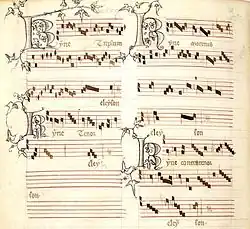 Kyrie Triplum
eleyson
Kyrie Tenor
eley
son
Kyrie
eley son
Kyrie contratenor
eley son